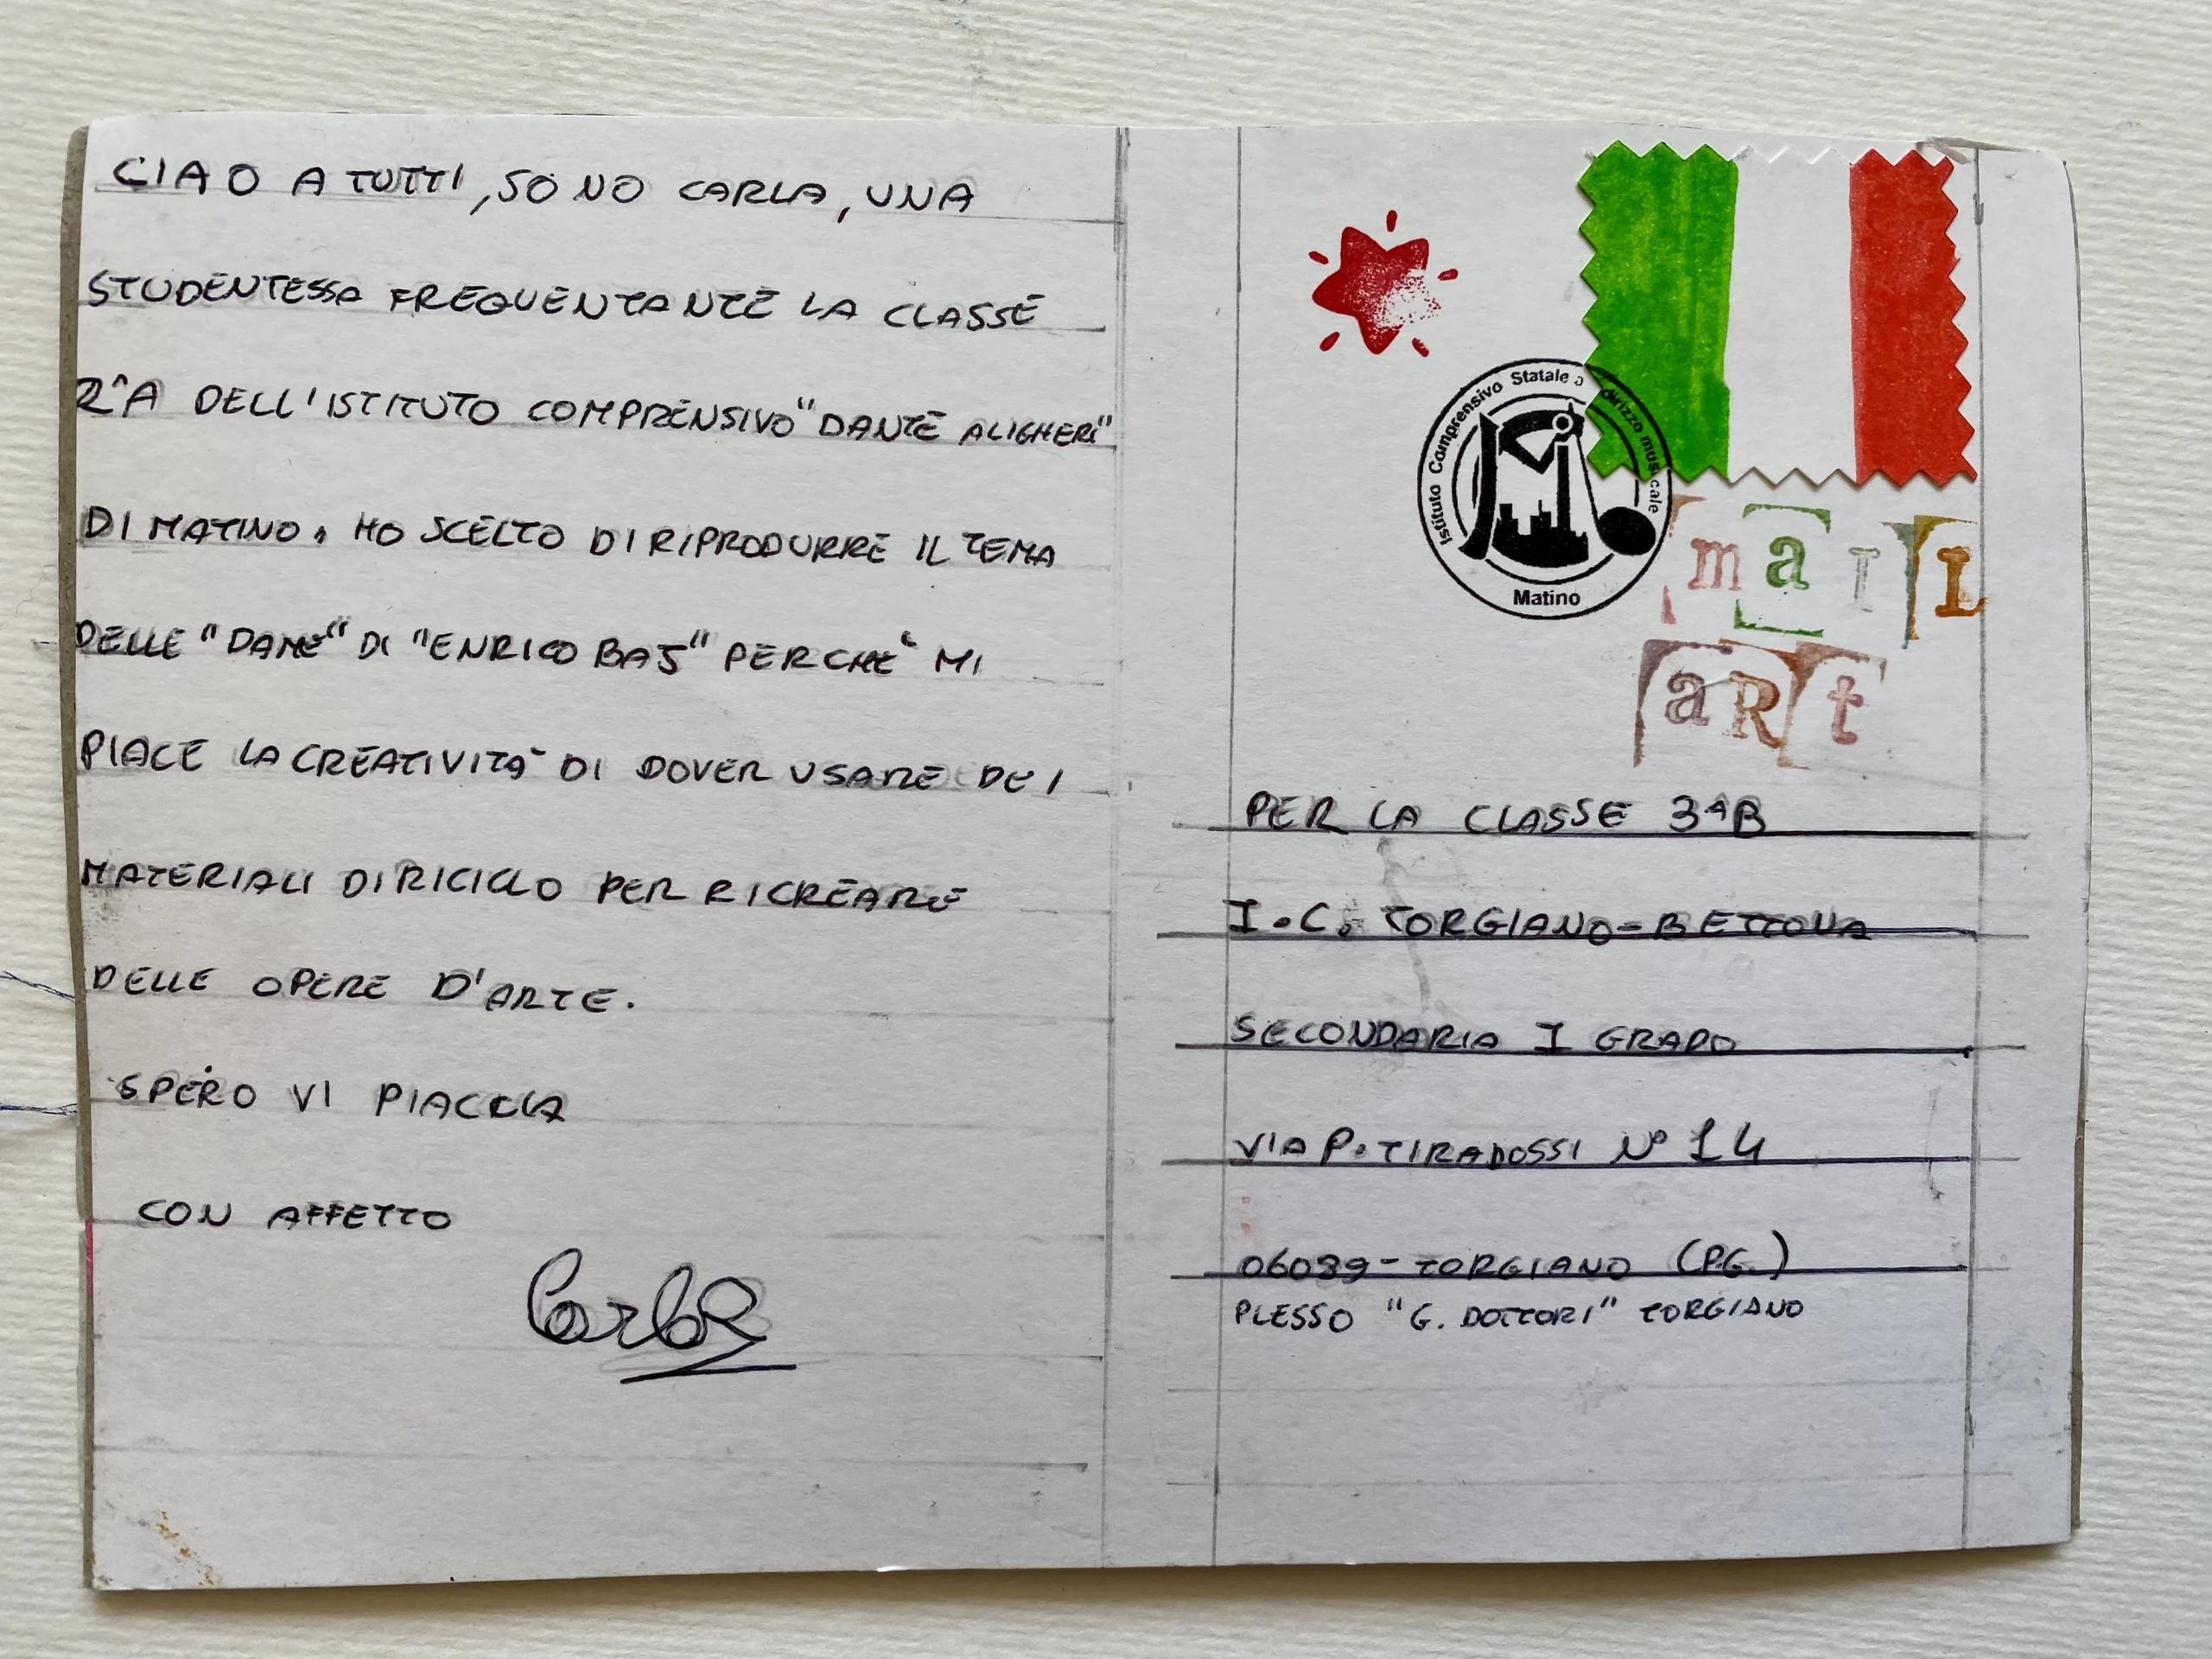 CIAO A TUTTI, SONO CARLA, UNA
STUDENTESSA FREQUENTANTE LA CLASSE
2^A DELL'ISTITUTO COMPRENSIVO "DANTE ALIGHERI"
DI MATINO. HO SCELTO DI RIPRODURRE IL TEMA
DELLE "DAME" DI "ENRICO BAJ" PERCHÈ MI
PIACE LA CREATIVITÀ DI DOVER USARE DEI
MATERIALI DI RICICLO PER RICREARE
DELLE OPERE D'ARTE.
SPERO VI PIACCIA
CON AFFETTO
Carla
Istituto Comprensivo Statale a dirizzo musicale
Matino
maIL
aRt
PER LA CLASSE 3^B
I.C. TORGIANO-BETTONA
SECONDARIA I GRADO
VIA P. TIRADOSSI N° 14
06089 - TORGIANO (PG.)
PLESSO "G. DOTTORI" TORGIANO